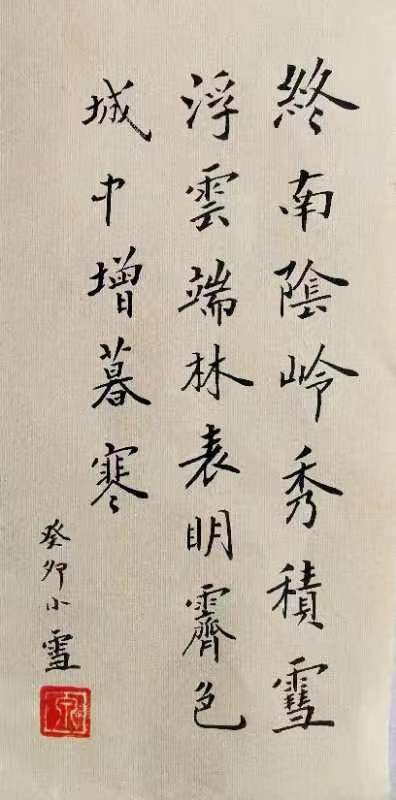 終南陰岭秀積雪
浮雲端林表明霽色
城中增暮寒
癸卯小雪